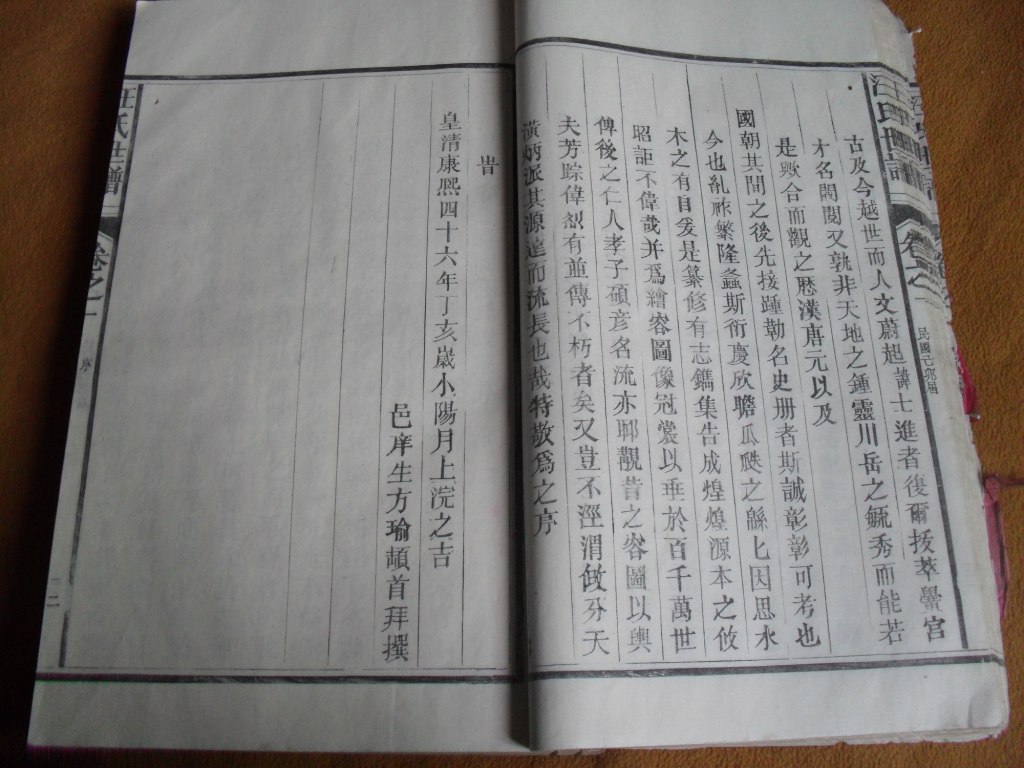 古及今越世而人文蔚起薦士進者復爾拔萃黌宮
才名閥閱又孰非天地之鍾靈川岳之毓秀而能若
是歟合而觀之歷漢唐元以及
國朝其間之後先接踵勒名史册者斯誠彰彰可考也
今也亂祚繁隆螽斯衍慶欣瞻瓜瓞之緜匕因思水
木之有目爰是纂修有志鐫集告成煌煌源本之攸
昭詎不偉哉并爲繪容圖像冠裳以垂於百千萬世
俾後之仁人孝子碩彥名流亦即覩昔之容圖以興
夫芳踪偉烈有並傳不朽者矣又豈不涇渭倣分天
潢炳派其源遠而流長也哉特敬爲之序
旹
皇清康熙四十六年丁亥歲小陽月上浣之吉
邑庠生方瑜頓首拜撰
汪氏世譜
卷之一
序
二